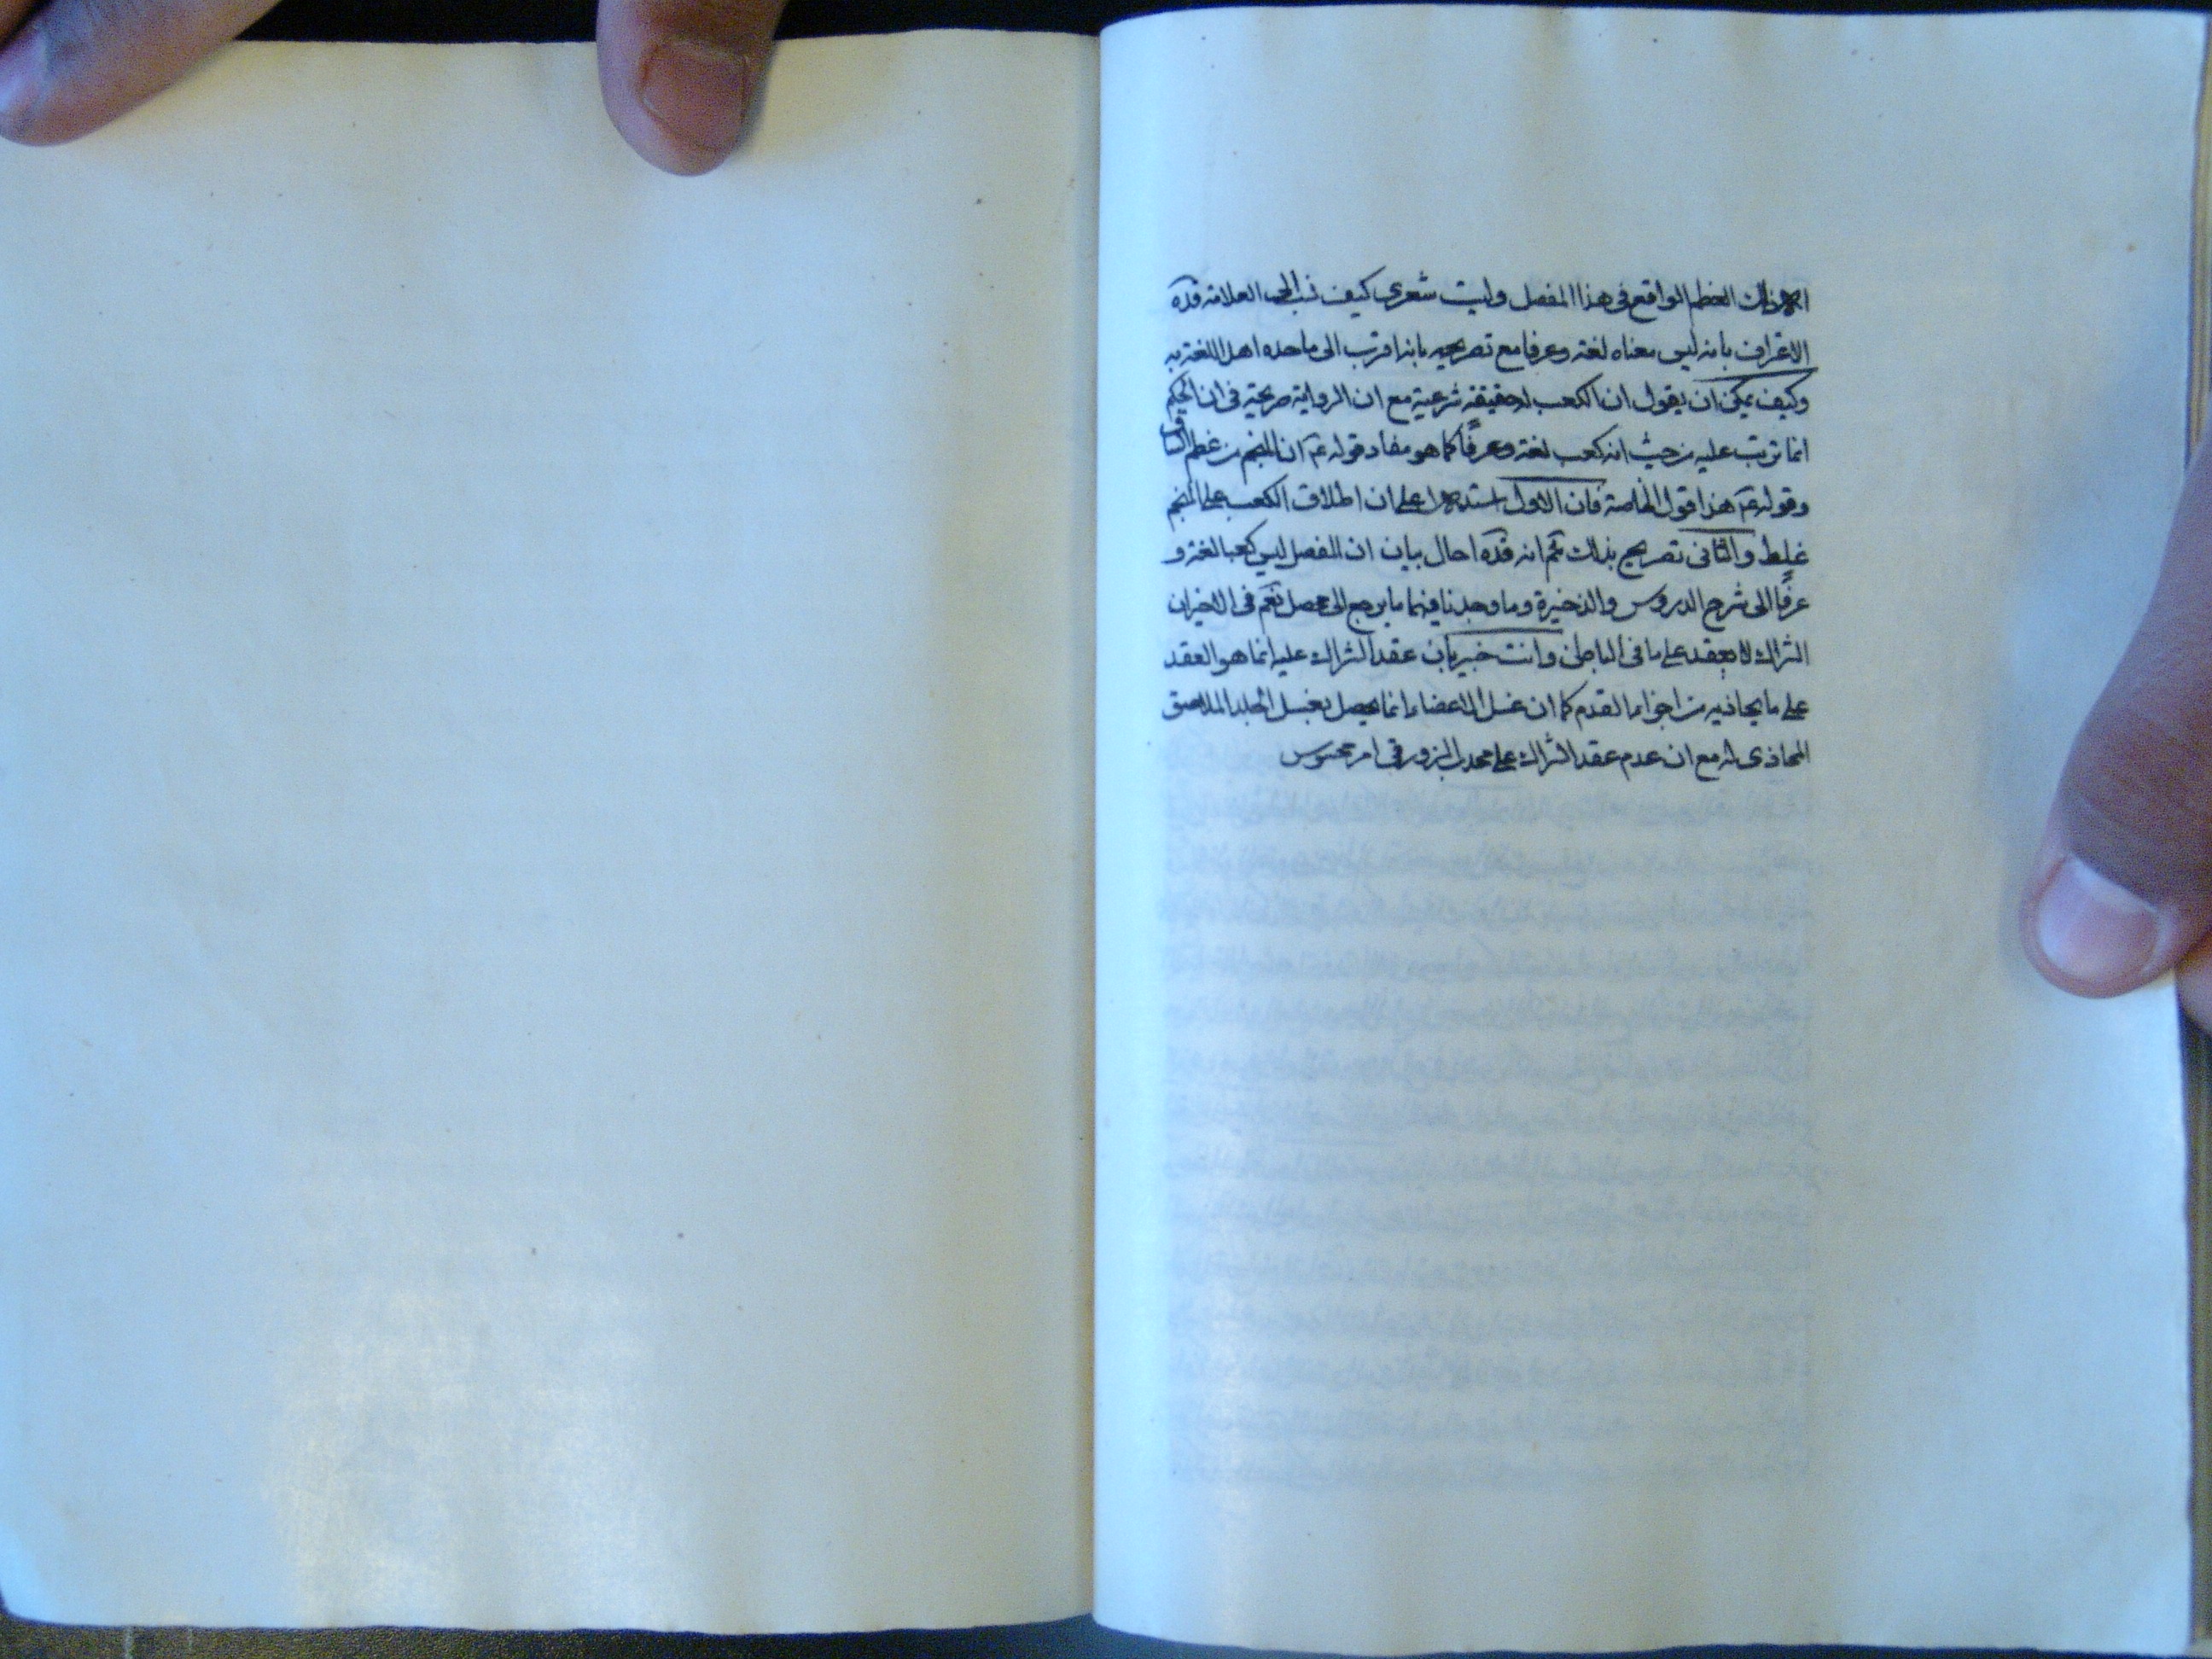 العظم الواقع فى هذا المفصل وليت شعرى كيف نسب الى العلامة قده
الاعتراف بانه ليس معناه لغة وعرفا مع تصريحه بانه اقرب الى ما حده اهل اللغة به
وكيف يمكن ان يقول ان الكعب له حقيقة شرعية مع ان الرواية صريحة فى ان الحكم
انما ترتب عليه من حيث انه كعب لغة وعرفًا كما هو مفاد قوله عم ان المنجم من عظم الساق
وقوله عم هذا قول الخاصة فان الاول استدلال على ان اطلاق الكعب على المنجم
غلط والثانى تصريح بذلك ثم انه قده احال بيان ان المفصل ليس كعبا لغة و
عرفًا الى شرح الدروس والذخيرة وما وجدنا فيهما ما يرجع الى محصل نعم فى الاخير ان
الشراك لا يعقد على ما فى الباطن وانت خبير بان عقد الشراك عليه انما هو العقد
على ما يحاذيه من اجزاء القدم كما ان غسل الاعضاء انما يحصل بغسل الجلد الملاصق
المحاذى له مع ان عدم عقد الشراك على محدب الزورقى امر محسوس